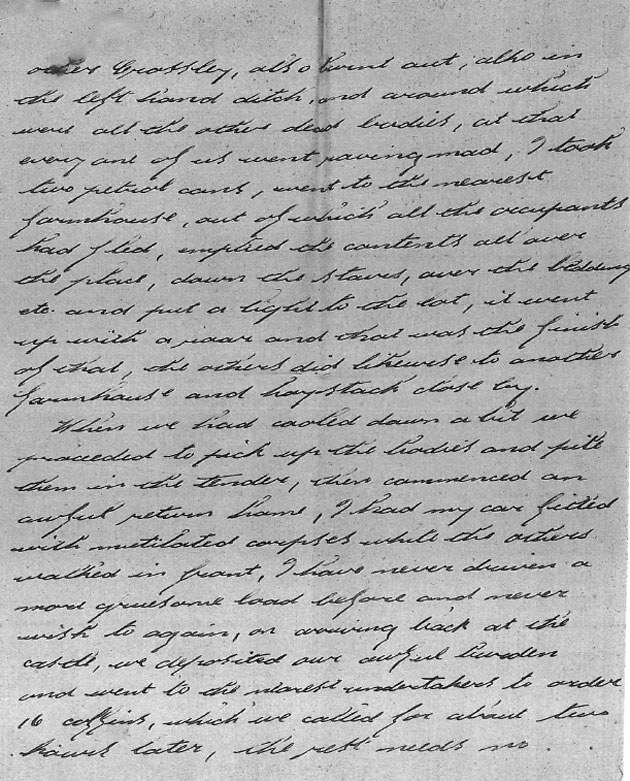 other Crossley, also burnt out, also in
the left hand ditch, and around which
were all the other dead bodies, at that
every one of us went raving mad, I took
two petrol cans, went to the nearest
farmhouse, out of which all the occupants
had fled, emptied the contents all over
the place, down the staires, over the bedding
etc. and put a light to the lot, it went
up with a roar and that was the finish
of that, the others did likewise to another
farmhouse and haystack close by.
When we had cooled down a bit we
proceeded to pick up the bodies and pile
them in the tender, then commenced an
awful return home, I had my car filled
with mutilated corpses while the others
walked in front, I have never driven a
more gruesome load before and never
wish to again, on arriving back at the
castle, we deposited our awful burden
and went to the nearest undertakers to order
16 coffins, which we called for about two
hours later, the rest needs no